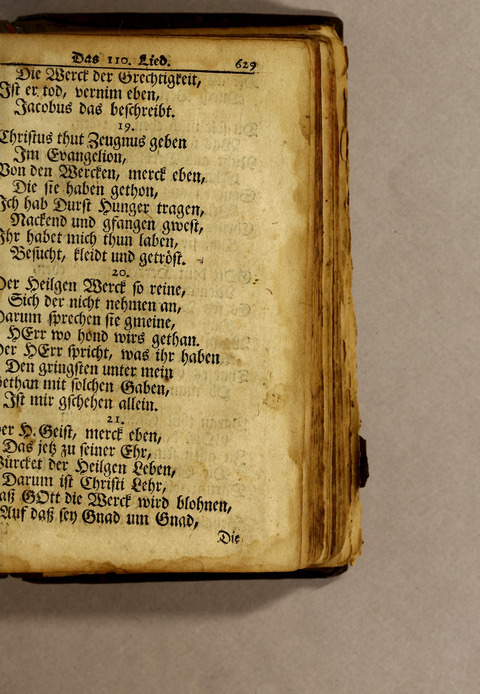 Das 110. Lied. 629
Die Werck der Grechtigkeit,
Ist er tod, vernim eben,
Jacobus das beschreibt.
19.
Christus thut Zeugnus geben
Im Evangelion,
Von den Wercken, merck eben,
Die sie haben gethon,
Ich hab Durst Hunger tragen,
Nackend und gfangen gwest,
Ihr habet mich thun laben,
Besucht, kleidt und getröst.
20.
Der Heilgen Werck so reine,
Sich der nicht nehmen an,
Darum sprechen sie gmeine,
HErr wo hond wirs gethan.
Der HErr spricht, was ihr haben
Den gringsten unter mein
Gethan mit solchen Gaben,
Ist mir gschehen allein.
21.
Der H. Geist, merck eben,
Das jetz zu seiner Ehr,
Würcket der Heilgen Leben,
Darum ist Christi Lehr,
Daß GOtt die Werck wird blohnen,
Auf daß sey Gnad um Gnad,
Die